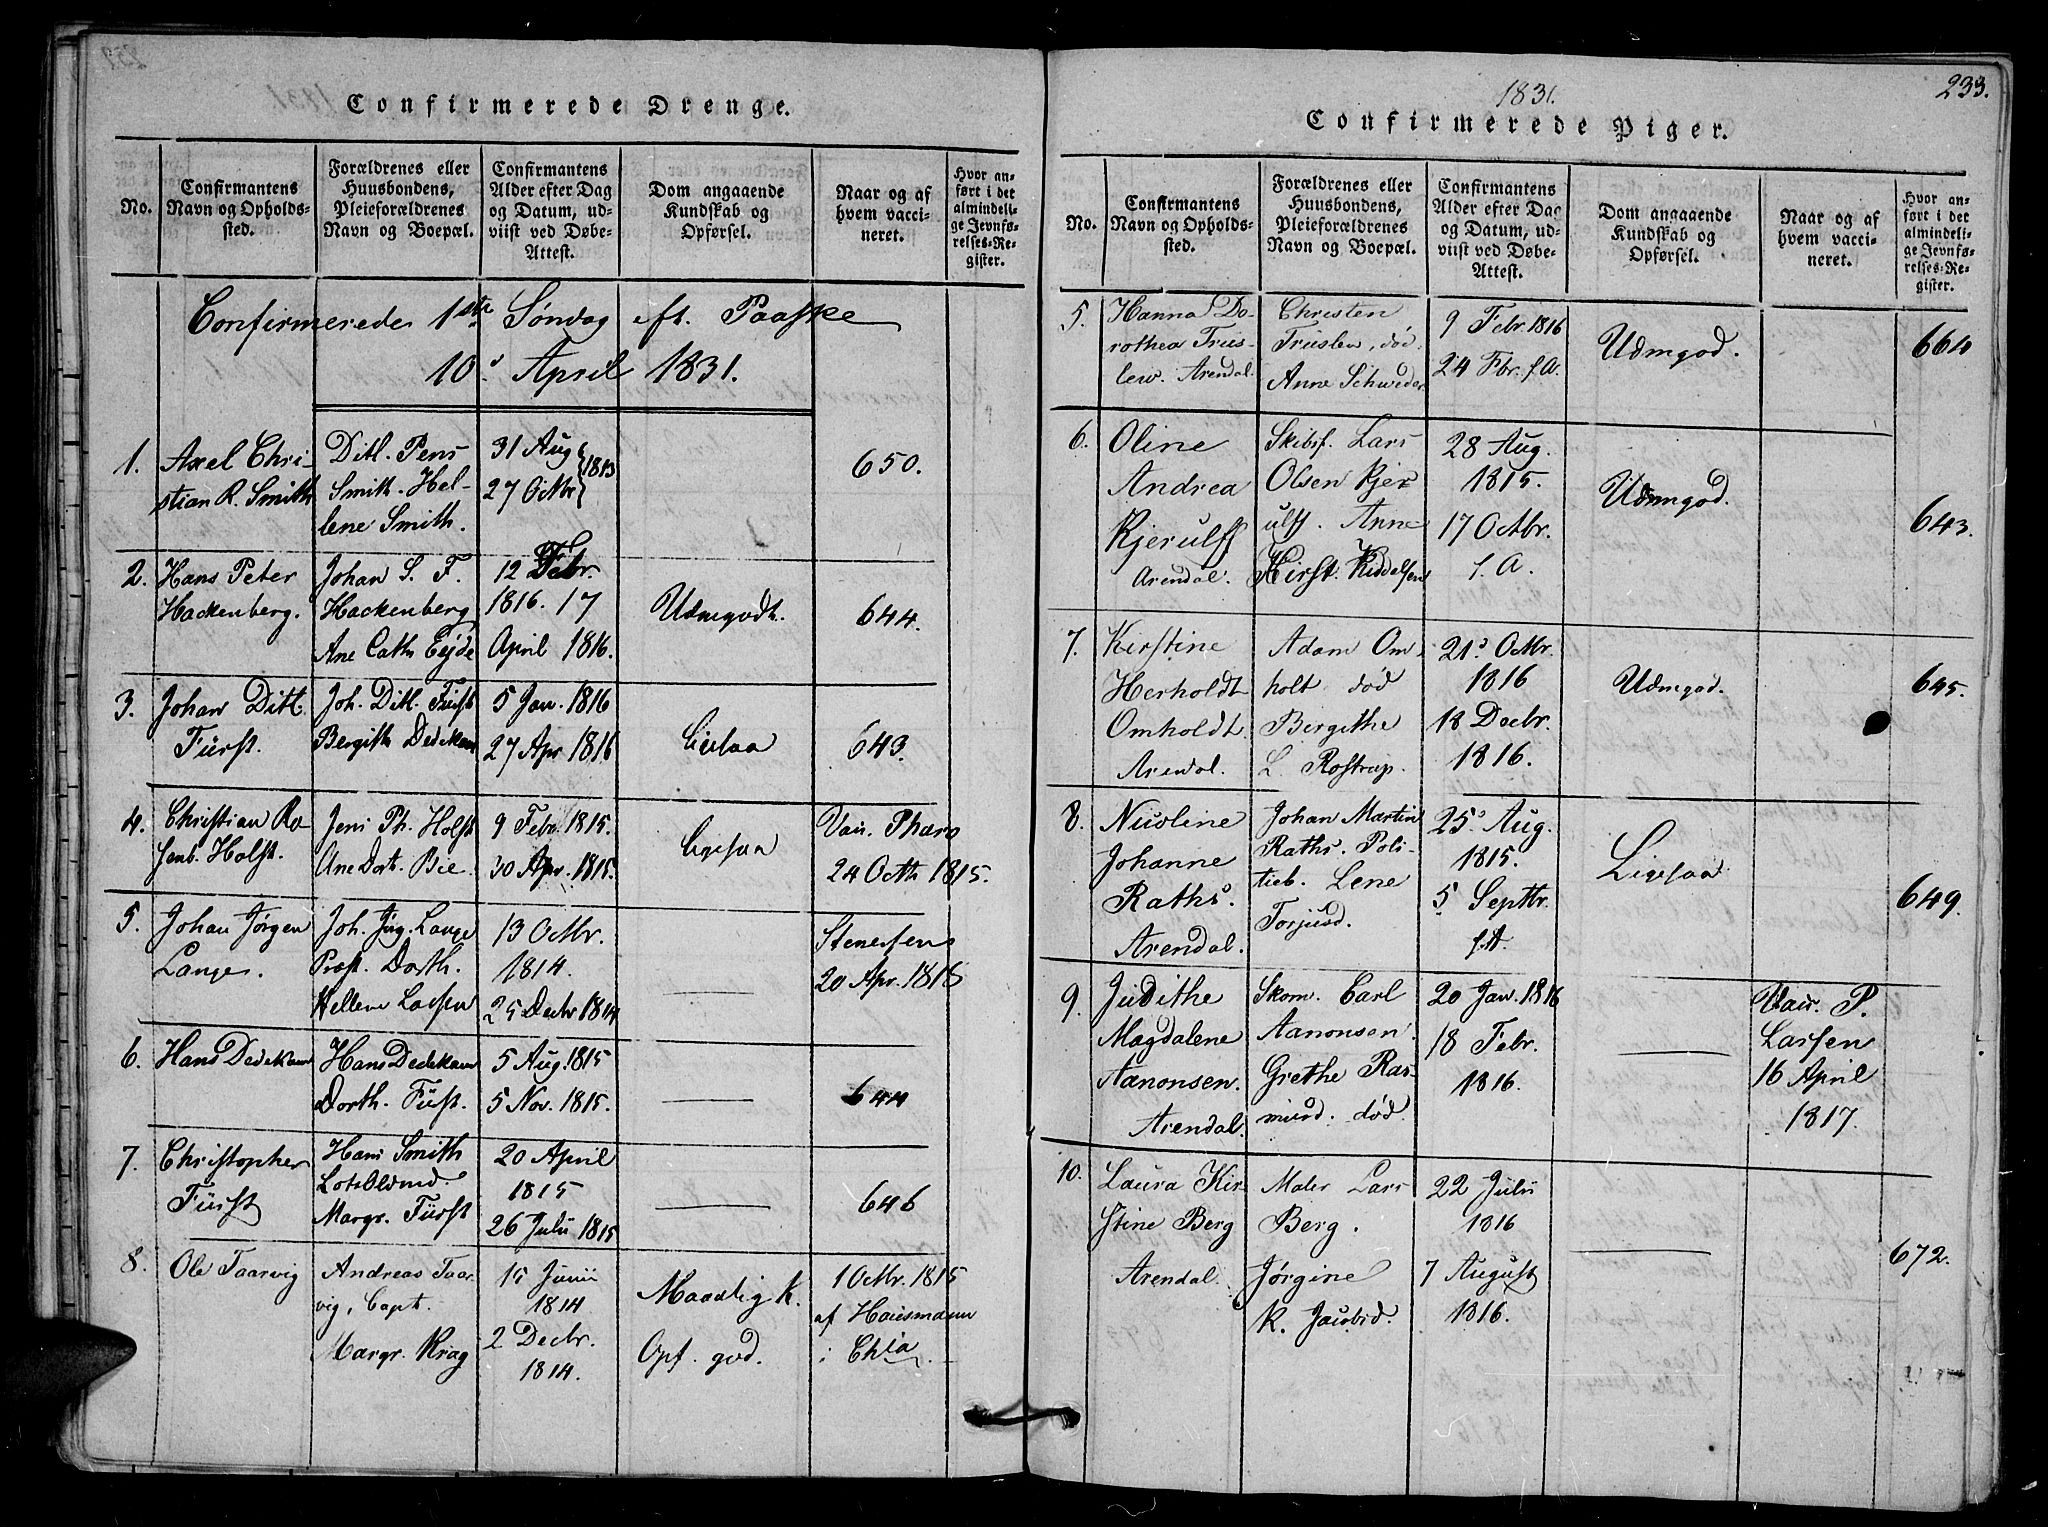 Confirmerede Drenge.
No.
Confirmantens
Navn og Opholds-
sted.
Forældrenes eller
Huusbondens,
Pleieforældrenes
Navn og Boepæl.
Confirmantens
Alder efter Dag
og Datum, ud-
viist ved Døbe-
Attest.
Dom angaaende
Kundskab og
Opførsel.
Naar og af
hvem vacci-
neret.
Hvor an-
ført i det
almindeli-
ge Jevnfø-
relses-Re-
gister.
Confirmerede 1ste Søndag eft. Paaske
10d April 1831.
1.
Axel Chri-
stian R. Smith
Ditl. Pens
Smith. Hel-
lene Smith.
31 Aug
27 Octbr } 1813
650.
2.
Hans Peter
Hackenberg.
Johan S. F.
Hackenberg
Ane Cath Eyde
12 Febr.
1816. 17
April 1816.
Udmgodt.
644.
3.
Johan Ditl.
Fürst.
Joh. Ditl. Fürst
Bergith Dedekam
5 Jan. 1816
27 Apr 1816
Ligesaa
643.
4.
Christian Ro-
senb. Holst.
Jens Ph. Holst
Ane Dort. Bie.
9 Febr. 1815.
30 Apr. 1815.
Ligesaa
Vac. Pharo
24 Octb 1815.
5.
Johan Jørgen
Lange.
Joh. Jørg. Lange
Prost. Dorth.
Hellene Lassen
13 Octbr.
1814.
25 Decbr 1814
Stenersen
20 Apr. 1818
6.
Hans Dedekam
Hans Dedekam
Dorth. Fürst.
5 Aug. 1815
5 Nov. 1815.
644
7.
Christopher
Fürst
Hans Smith
Lotsoldmd.
Margr. Fürst
20 April
1815
26 Julii 1815
646
8.
Ole Taarvig
Andreas Taar-
vig, Capt.
Margr. Krag
15 Junii
1814
2 Decbr.
1814.
Maadelig K.
Opf. god.
1 Octbr. 1815
af Hausmann
i Chia.
233.
1831.
Confirmerede Piger.
No.
Confirmantens
Navn og Opholds-
sted.
Forældrenes eller
Huusbondens,
Pleieforældrenes
Navn og Boepæl.
Confirmantens
Alder efter Dag
og Datum, ud-
viist ved Døbe-
Attest.
Dom angaaende
Kundskab og
Opførsel.
Naar og af
hvem vacci-
neret.
Hvor an-
ført i det
almindeli-
ge Jevnfø-
relses-Re-
gister.
5.
Hanna Do-
rothea Trus-
lew. Arendal.
Christen
Truslew, død.
Anne Schweder
9 Febr. 1816
24 Fbr. s.A.
Udmgod.
660
6.
Oline
Andrea
Kjerulff
Arendal.
Skibsf. Lars
Olsen Kjer-
ulff. Anne
Kirst. Kiddelsen
28 Aug.
1815.
17 Octbr.
s. A.
Udmgod.
643.
7.
Kirstine
Herholdt
Omholdt.
Arendal.
Adam Om-
holt død
Bergithe
L. Rostrup.
21d Octbr.
1816
18 Decbr.
1816.
Udmgod.
645.
8.
Nicoline
Johanne
Raths.
Arendal.
Johan Martin
Raths. Poli-
tieb. Lene
Torjusd.
25d Aug.
1815.
5 Septbr.
s.A.
Ligesaa
649.
9.
Judithe
Magdalene
Aanonsen.
Arendal.
Skom. Carl
Aanonsen.
Grethe Ras-
musd. død.
20 Jan. 1816
18 Febr.
1816.
Vac. P.
Larsen
16 April
1817.
10.
Laura Kir-
stine Berg
Arendal.
Maler Lars
Berg.
Jørgine
K. Jacobsd.
22 Julii
1816
7 August
1816.
672.